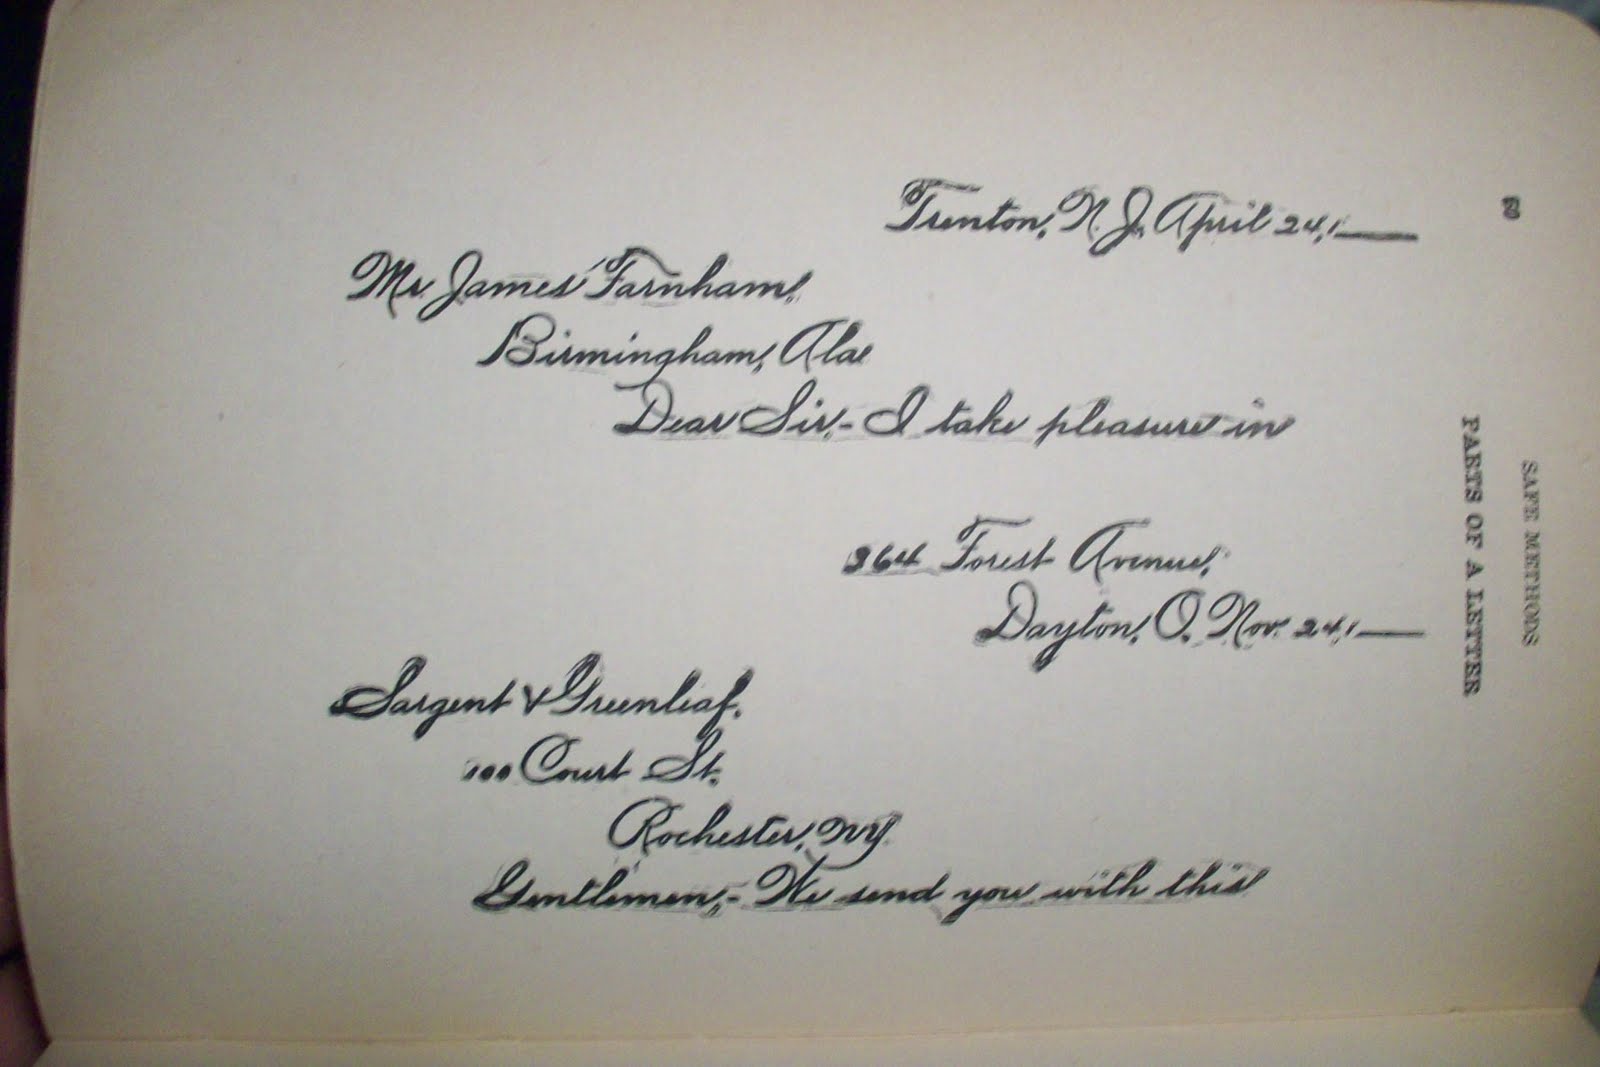 SAFE METHODS
PARTS OF A LETTER
Trenton, N. J. April 24, 1——
Mr. James Farnham,
Birmingham, Ala.
Dear Sir,- I take pleasure in
364 Forest Avenue,
Dayton, O. Nov. 24, 1——
Sargent & Greenleaf,
100 Court St.
Rochester, NY.
Gentlemen,- We send you with this